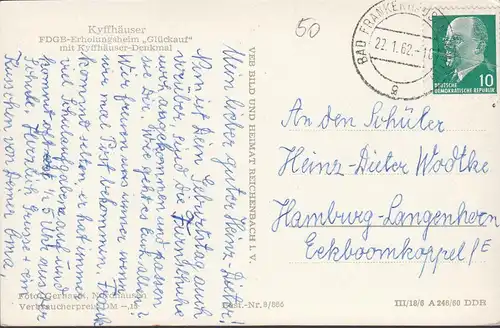 Kyffhäuser
FDGB-Erholungsheim „Glückauf"
mit Kyffhäuser-Denkmal
50
BAD FRANKENHAUSEN
22.1.62.-1
g
DEUTSCHE
DEMOKRATISCHE REPUBLIK
10
Mein lieber guter Heinz-Dieter!
Nun ist Dein Geburtstag auch
vorüber, sind die Turnschuhe
auch angekommen und passen
sie Dir? Wie geht es Euch allen?
Wir freuen uns immer wenn
wir mal Post bekommen.
kommt selten, er hat immer
viel Schulaufgaben auf und
kommt erst 1/2 5 Uhr aus der
Schule. Herzlich grüsse + ein
Küsschen von Deiner Oma.
VEB BILD UND HEIMAT REICHENBACH I. V.
An den Schüler
Heinz-Dieter Wodtke
Hamburg-Langenhorn
Eckboomkoppel
Foto: Gerhardt, Nordhausen
Verbraucherpreis DM –.15
Best.-Nr. 8/886
III/18/6 A 248/60 DDR